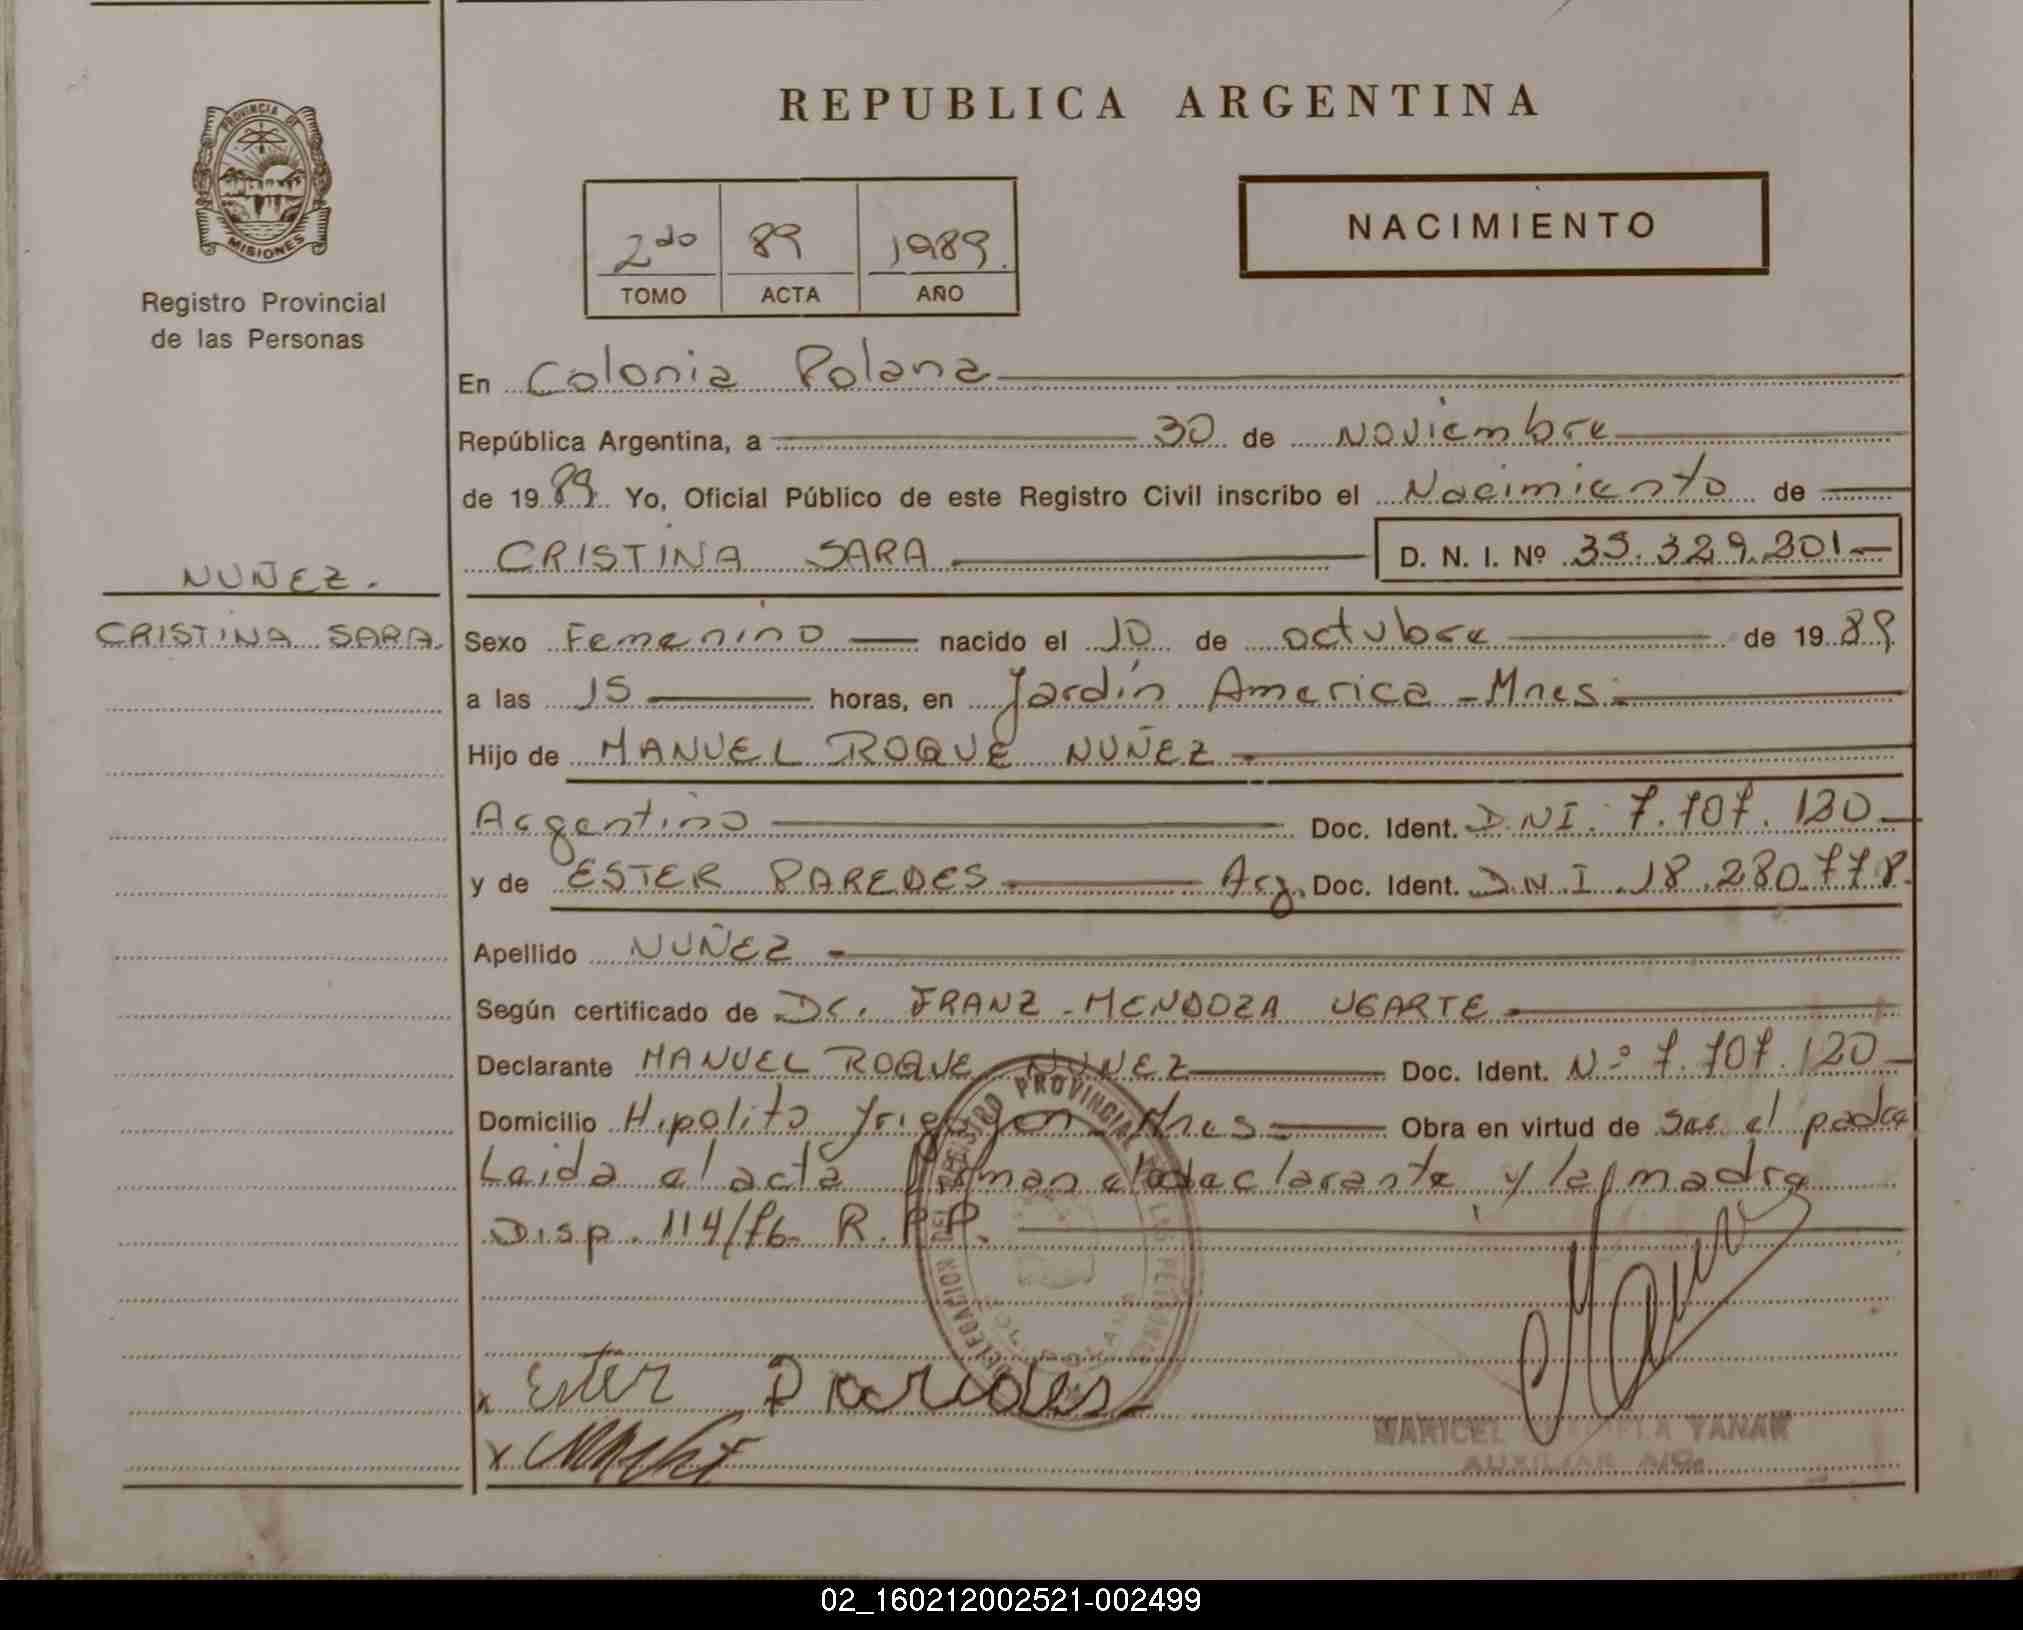 REPUBLICA ARGENTINA
PROVINCIA DE
MISIONES
Registro Provincial
de las Personas
2do 89 1989.
TOMO ACTA AÑO
NACIMIENTO
En Colonia Polana
República Argentina, a 30 de Noviembre
de 1989. Yo, Oficial Público de este Registro Civil inscribo el Nacimiento de
CRISTINA SARA D. N. I. Nº
NUÑEZ.
CRISTINA SARA.
Sexo Femenino nacido el 10 de octubre de 1989
a las 15 horas, en Jardín America - Mnes.
Hijo de MANUEL ROQUE NUÑEZ
Argentino Doc. Ident. D.N.I. 7.707.120
y de ESTER PAREDES Arg. Doc. Ident. D.N.I. 18.280.778.
Apellido NUÑEZ
Según certificado de Dr. FRANZ - MENDOZA UGARTE
Declarante MANUEL ROQUE NUNEZ Doc. Ident. N.º 7.707.120
Domicilio Hipolito Yrigoyen Mnes Obra en virtud de ser el padre
Leida el acta firman el declarante y la madre
Disp. 114/76 R.P.P.
REGISTRO PROVINCIAL DE LAS PERSONAS
DELEGACION
Ester Paredes
MARICEL YANAK
AUXILIAR
02_160212002521-002499